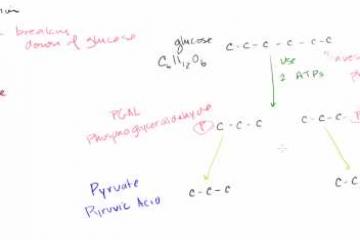 breaking
down of glucose
glucose C-C-C-C-C-C
C₆H₁₂O₆
use
2 ATPs
PGAL
Phosphoglyceraldehyde
P C-C-C C-C-C-P
Pyruvate
Pyruvic Acid
C-C-C C-C